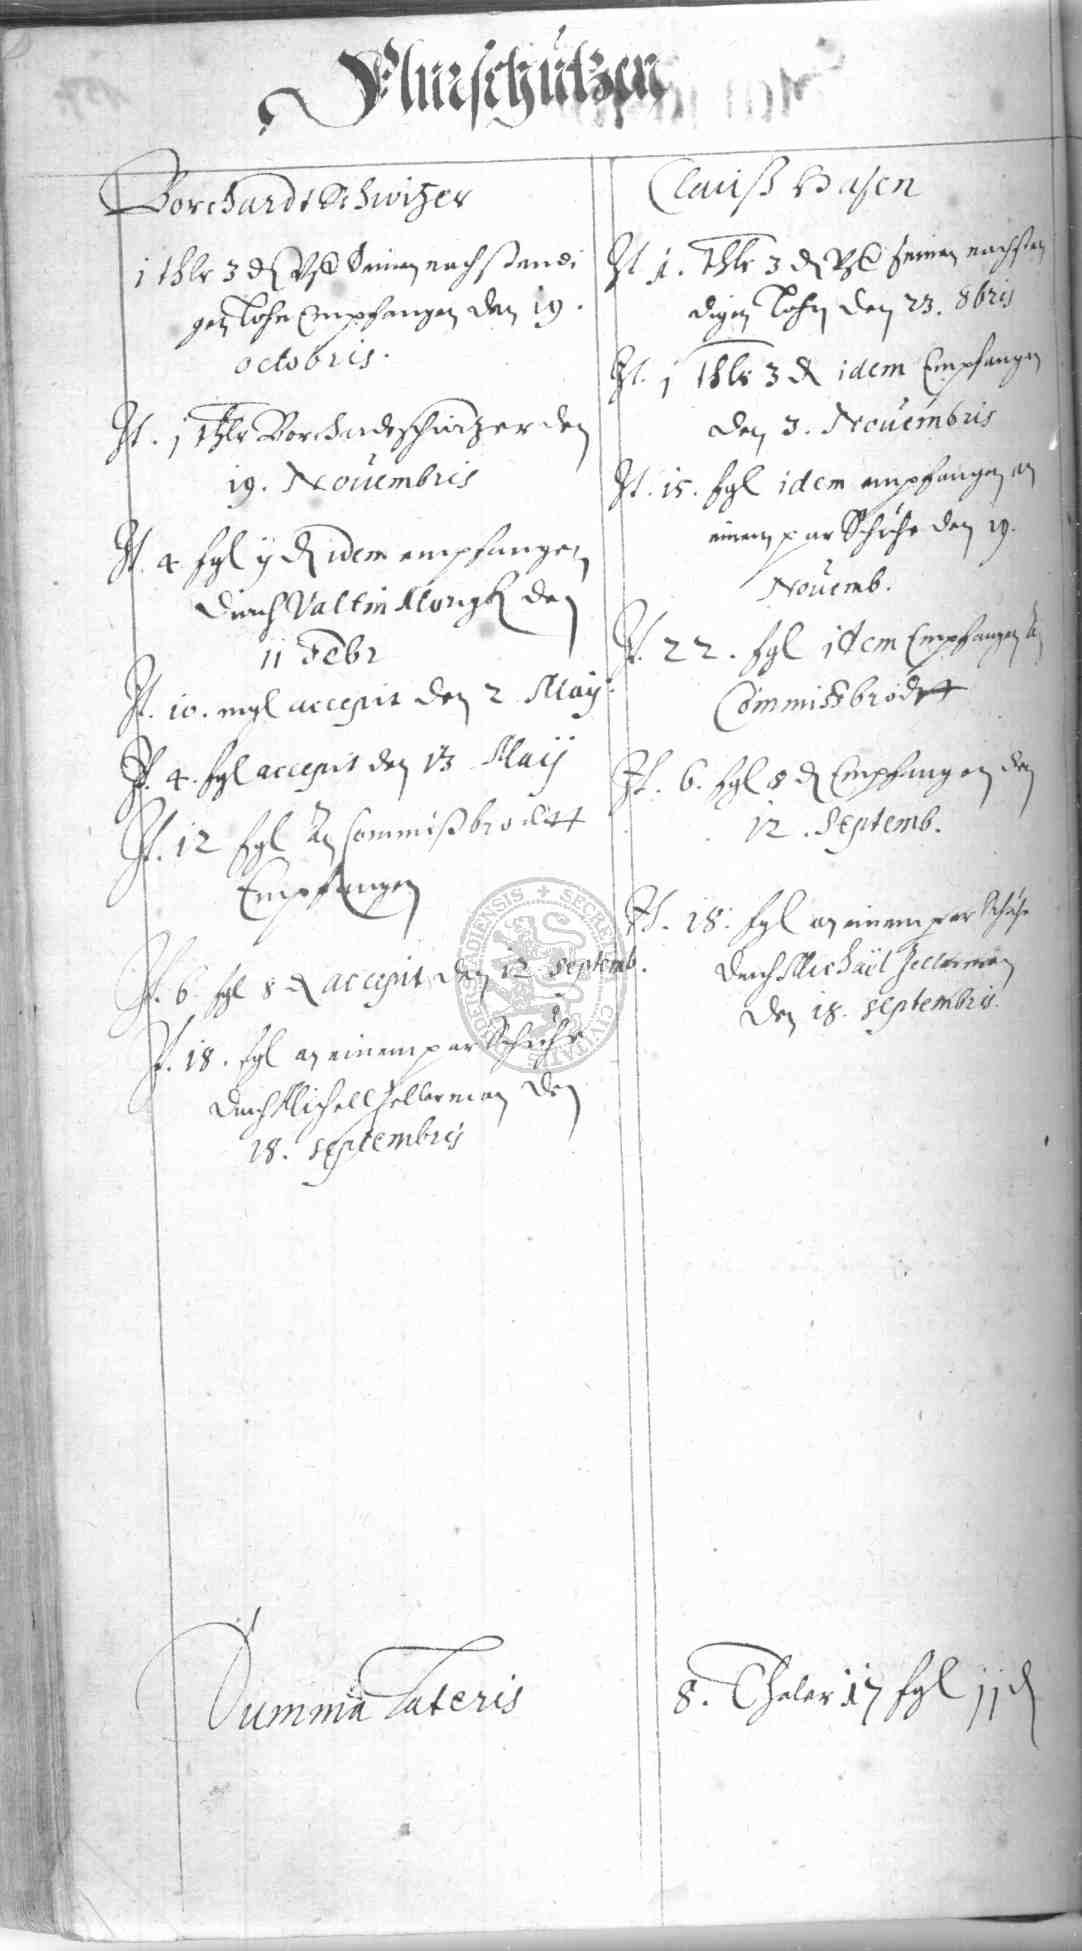 Flurschützen
Borchardt Schwitzer
1 thlr 3 ₰ Vff seinen nachstendi
gen Lohn Empfangen den 19.
octobris.
It. 1 thlr Borchardt Schwitzer den
19. Nouembris
It. 4 fgl ij ₰ idem empfangen
durch Valtin den
11 Febr
It. 10. mgl accepit den 2 Maij
It. 4. fgl accepit den 13 Maij
It. 12 fgl An Commißbrodtt
Empfangen
It. 6. fgl 8 ₰ accepit den 12 Septemb.
It. 18. fgl an einem par Schuhe
durch Michell Hellerman den
18. Septembris
Clauß Hasen
It. 1. thlr 3 ₰ Vff seinen nachsten
digen Lohn den 23. 8bris
It. 1 thlr 3 ₰ idem Empfangen
den 3. Nouembris
It. 15. fgl idem empfangen an
einem par Schuhe den 19.
Nouemb.
It. 22. fgl idem Empfangen An
Commissbrodtt
It. 6. fgl 8 ₰ Empfangen den
12. Septemb.
It. 18. fgl an einem par Schuhe
durch Michaël Hellerman
den 18. Septembris.
SECRET CIVITATIS ENSIS
Summa Lateris 8. Thaler 17 fgl 11 ₰